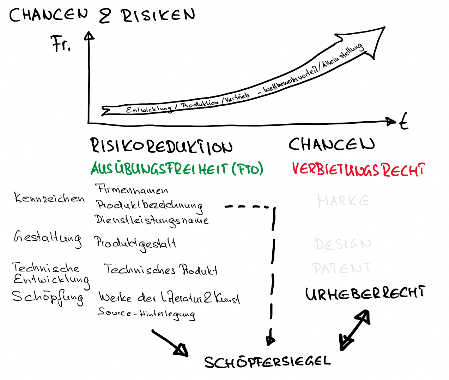 CHANCEN & RISIKEN
Fr.
Entwicklung / Produktion / Vertrieb - Wettbewerbsvorteil / Alleinstellung
t
RISIKOREDUKTION CHANCEN
AUSÜBUNGSFREIHEIT (FTO) VERBIETUNGSRECHT
Kennzeichen Firmennamen
Produktbezeichnung MARKE
Dienstleistungsname
Gestaltung Produktgestalt DESIGN
Technische Entwicklung Technisches Produkt PATENT
Schöpfung Werke der Literatur & Kunst URHEBERRECHT
Source-Hinterlegung
SCHÖPFERSIEGEL